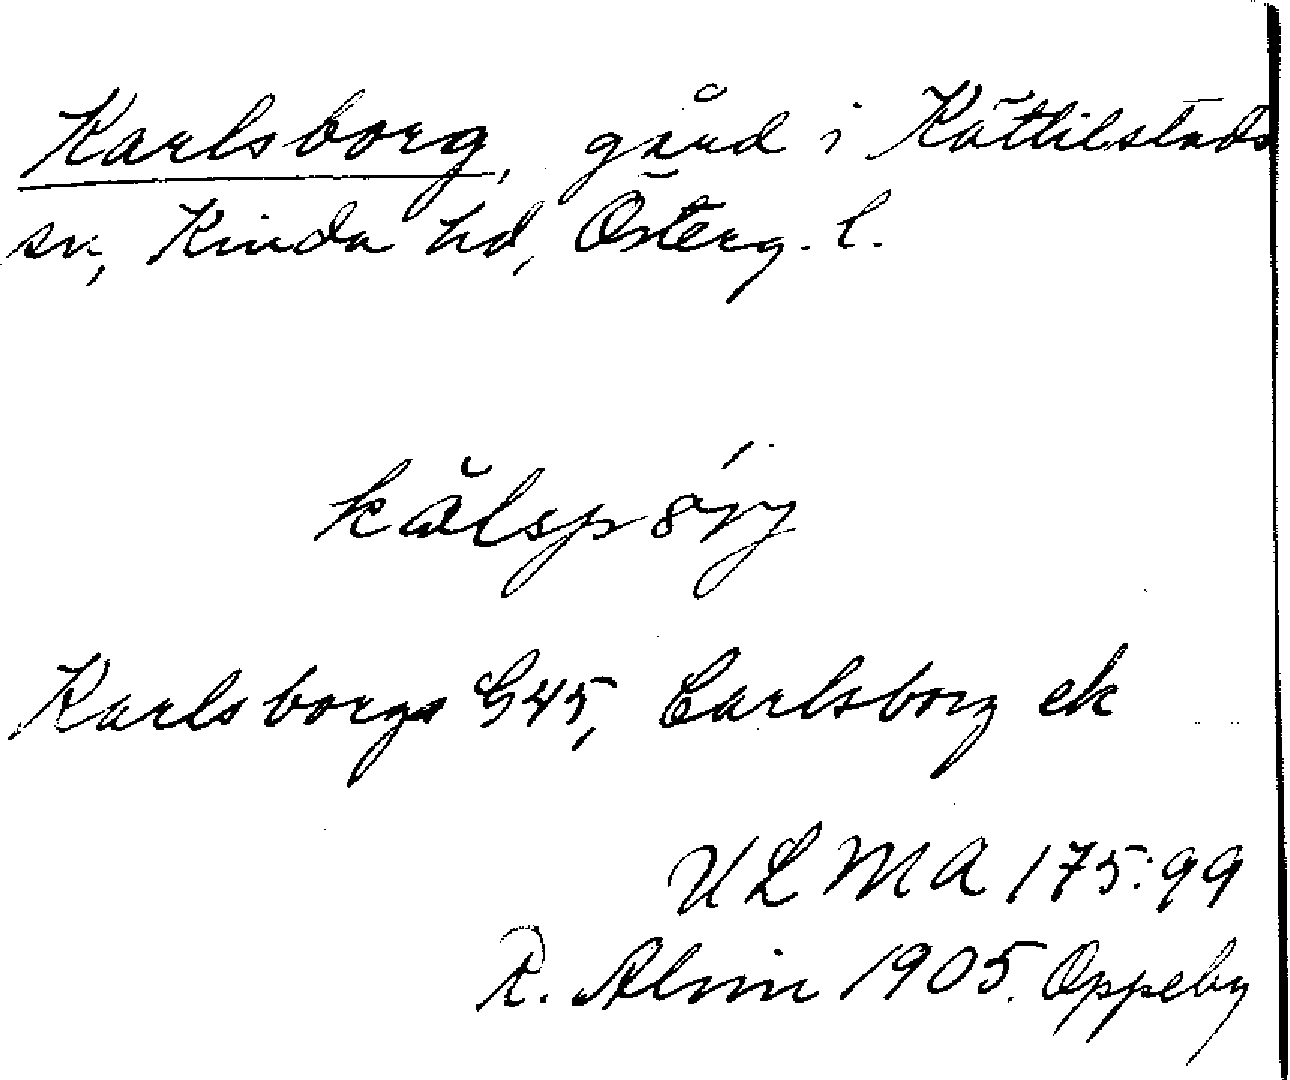 Karlsborg, gård i Kättilstads
sn, Kinda hd, Österg. l.
Karlsborgs G45, Carlsborg ek
ULMA 175:99
R. Alvin 1905. Oppeby